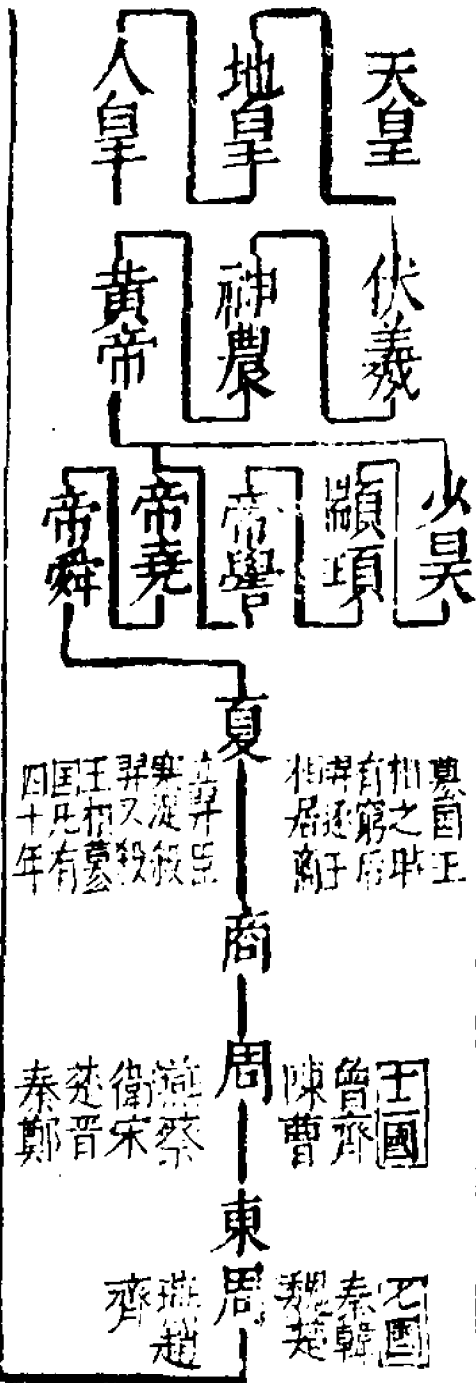 天皇
地皇
人皇
伏羲
神農
黃帝
少昊
顓頊
帝嚳
帝堯
帝舜
夏
篡国王
相之時
有窮后
羿逐于
相居商
羿臣
寒浞殺
羿又殺
王相篡
国凡有
四十年
商
周
十二國
魯齊
陳曹
燕蔡
衛宋
楚晉
秦鄭
東周
七國
秦韓
魏楚
燕趙
齊